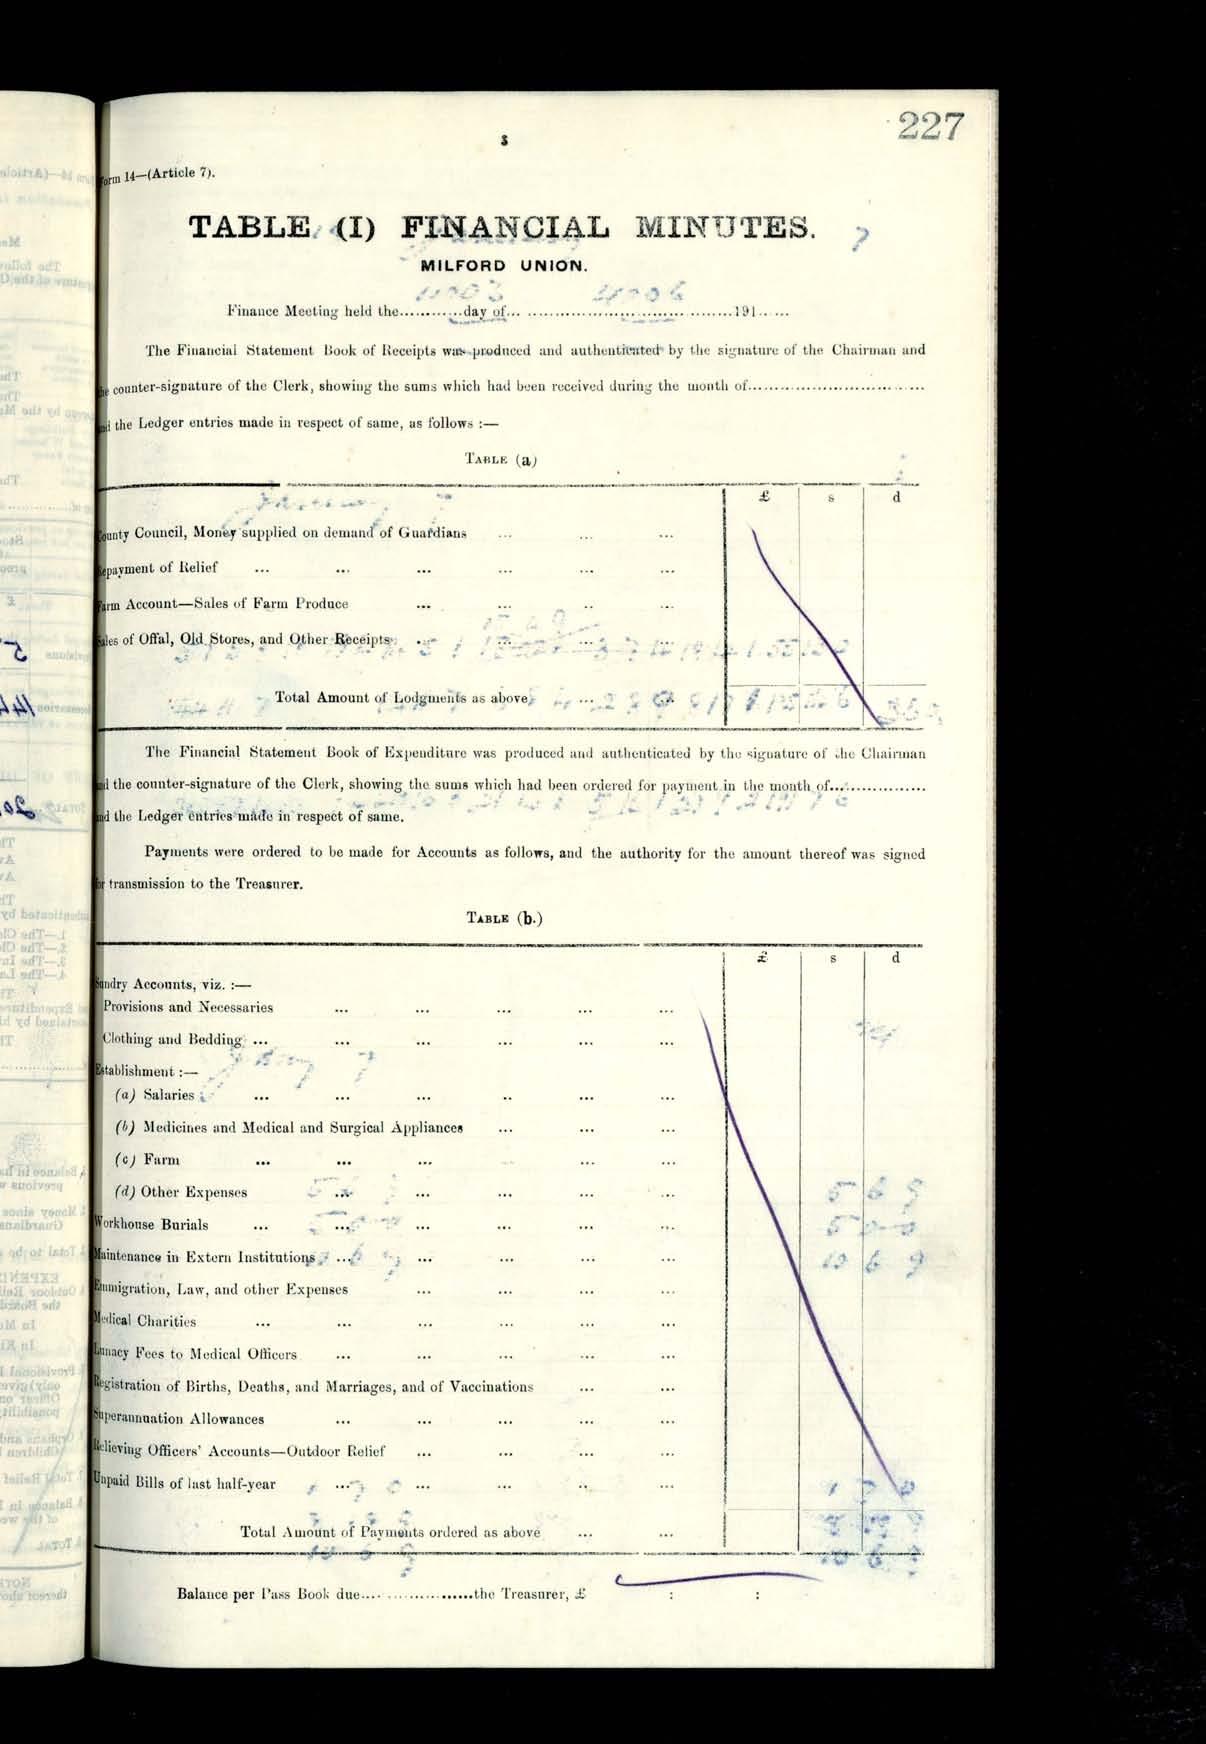 227
3
Form 14—(Article 7).
TABLE (I) FINANCIAL MINUTES.
MILFORD UNION.
Finance Meeting held the............day of.......................................191......
The Financial Statement Book of Receipts was produced and authenticated by the signature of the Chairman and
the counter-signature of the Clerk, showing the sums which had been received during the month of..............................
and the Ledger entries made in respect of same, as follows :—
TABLE (a)
£ s d
County Council, Money supplied on demand of Guardians ... ... ...
Repayment of Relief ... ... ... ... ... ...
Farm Account—Sales of Farm Produce ... ... ... ...
Sales of Offal, Old Stores, and Other Receipts ... ... ... ...
Total Amount of Lodgments as above ... ...
The Financial Statement Book of Expenditure was produced and authenticated by the signature of the Chairman
and the counter-signature of the Clerk, showing the sums which had been ordered for payment in the month of.................
and the Ledger entries made in respect of same.
Payments were ordered to be made for Accounts as follows, and the authority for the amount thereof was signed
for transmission to the Treasurer.
TABLE (b.)
£ s d
Sundry Accounts, viz. :—
Provisions and Necessaries ... ... ... ... ...
Clothing and Bedding ... ... ... ... ... ...
Establishment :—
(a) Salaries ... ... ... ... ... ...
(b) Medicines and Medical and Surgical Appliances ... ... ...
(c) Farm ... ... ... ... ... ...
(d) Other Expenses ... ... ... ... ...
Workhouse Burials ... ... ... ... ... ...
Maintenance in Extern Institutions ... ... ... ... ...
Emmigration, Law, and other Expenses ... ... ... ...
Medical Charities ... ... ... ... ... ...
Lunacy Fees to Medical Officers ... ... ... ... ...
Registration of Births, Deaths, and Marriages, and of Vaccinations ... ...
Superannuation Allowances ... ... ... ... ...
Relieving Officers' Accounts—Outdoor Relief ... ... ... ...
Unpaid Bills of last half-year ... ... ... ... ...
Total Amount of Payments ordered as above ... ...
Balance per Pass Book due.....................the Treasurer, £ : :